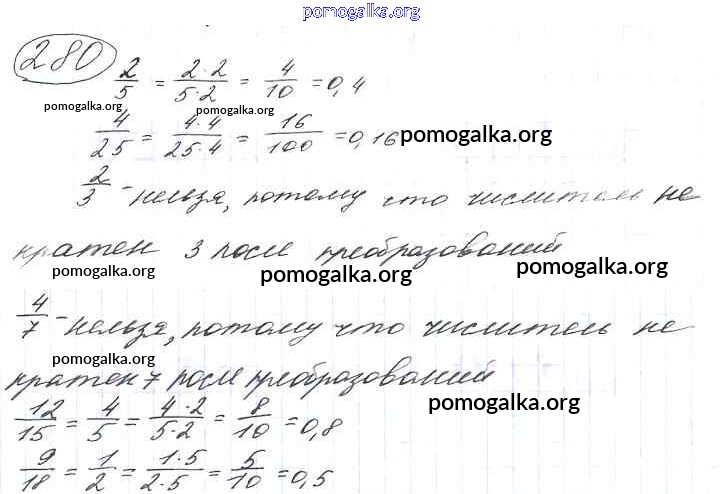 pomogalka.org
280
2/5 = 2·2/5·2 = 4/10 = 0,4
pomogalka.org pomogalka.org
4/25 = 4·4/25·4 = 16/100 = 0,16 pomogalka.org
2/3 - нельзя, потому что числитель не
pomogalka.org
кратен 3 после преобразований
pomogalka.org pomogalka.org pomogalka.org
4/7 - нельзя, потому что числитель не
pomogalka.org
кратен 7 после преобразований
12/15 = 4/5 = 4·2/5·2 = 8/10 = 0,8 pomogalka.org
9/18 = 1/2 = 1·5/2·5 = 5/10 = 0,5